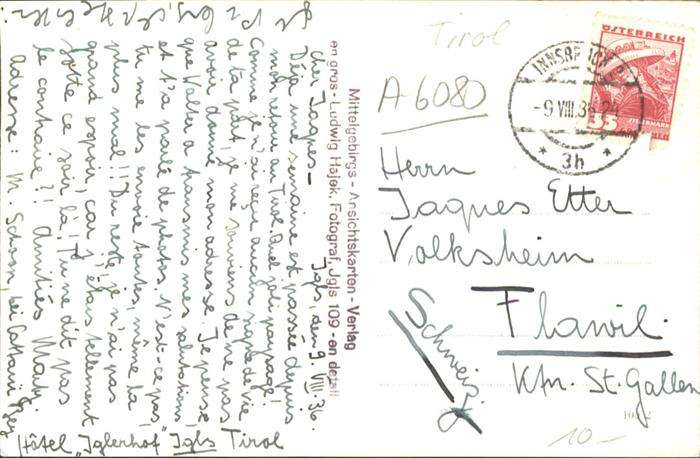 Igls, den 9 VIII. 36.
Cher Jaques –
Déjà une semaine est passée depuis
mon retour au Tirol. Quel joli paysage!
Comme je n'ai reçu aucun signe de vie
de ta part, je me souviens de ne pas
avoir donné mon adresse. Je pense,
que Walter a transmis mes salutations,
et t'a parlé de photos, n'est-ce pas,
tu me les envoie toutes, même la
plus mal!! Du reste, je n'ai pas
grand espoir, car j'étais tellement
sotte ce soir là! Tu ne dit pas
le contraire?! Amitiés Mary.
Adresse: M. Schom bei
Hôtel „Iglerhof" Igls Tirol
Mittelgebirgs - Ansichtskarten - Verlag
en gros - Ludwig Hajek, Fotograf, Jgls 109 - en detail
Tirol
A-6080
ÖSTERREICH
INNSBRUCK
-9.VIII.36
* 3h *
Herrn
Jaques Etter
Volksheim
Flawil.
Ktn. St. Gallen
Schweiz
10.-